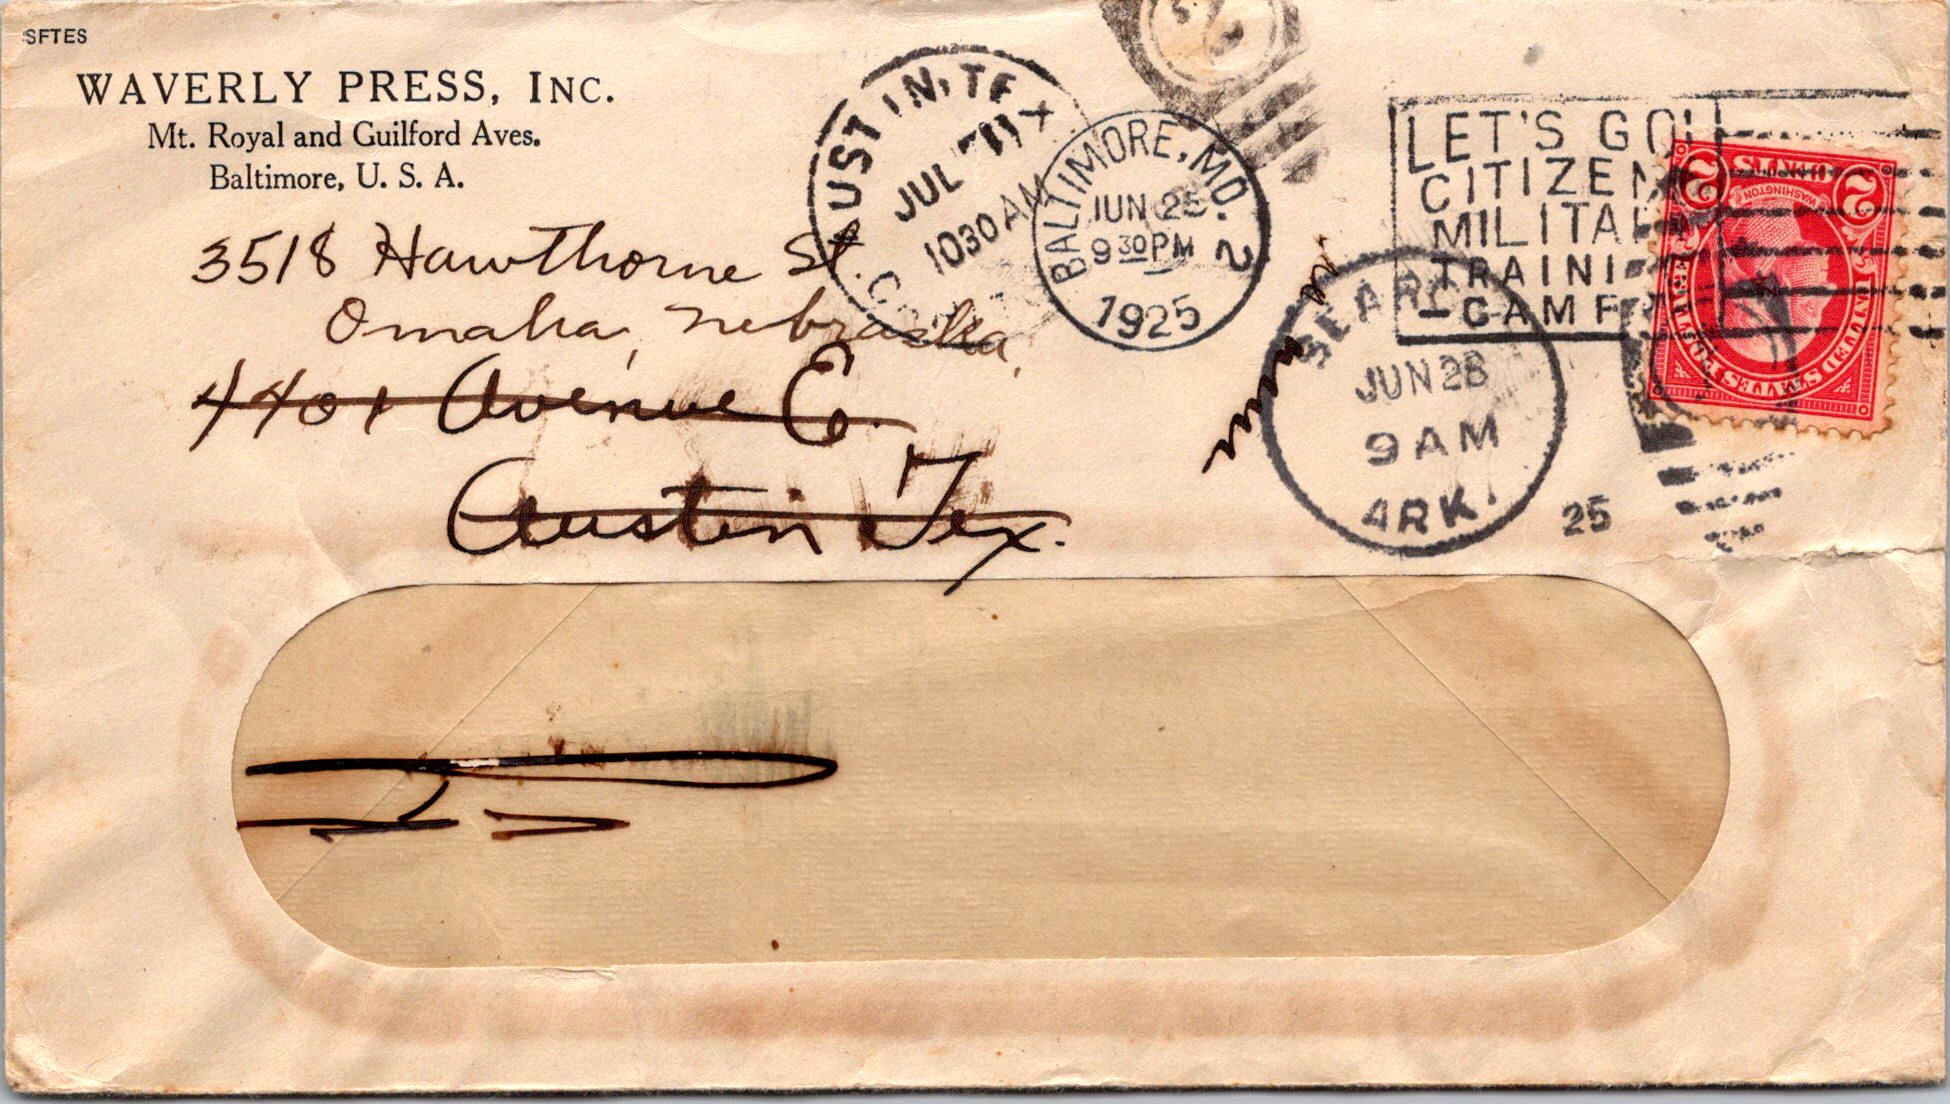 SFTES
WAVERLY PRESS, INC.
Mt. Royal and Guilford Aves.
Baltimore, U. S. A.
3518 Hawthorne St.
Omaha, Nebraska,
4401 Avenue E.
Austin Tex.
AUSTIN, TEX
JUL 11
1030 AM
BALTIMORE, MD. 2
JUN 25
930 PM
1925
LET'S GO!
CITIZEN
MILITA
TRAINI
CAMP
SEARC
JUN 28
9 AM
ARK.
25
2 CENTS 2
WASHINGTON
UNITED STATES POSTAGE